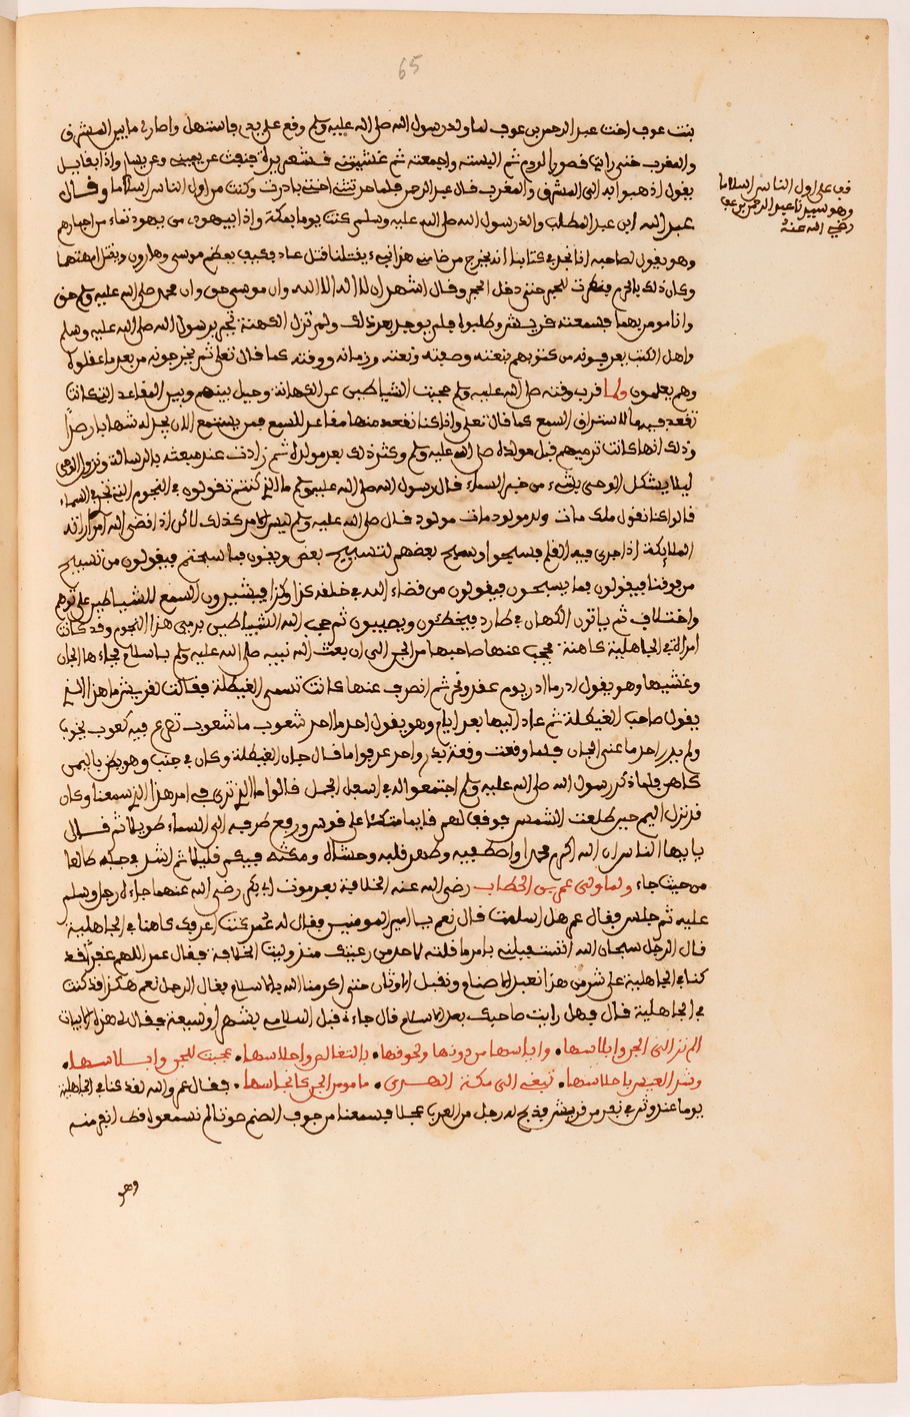 65
بنت عوف اخت عبد الرحمن بن عوف لما ولد رسول الله صلى الله عليه وسلم وقع على يدي فاستهل واضا لي ما بين المشرق
والمغرب حتى رايت قصور الروم ثم البسته واضجعته ثم غشيتني قشعريرة عن يميني وعن يساري واذا بقايل
يقول اذهبوا به الى المشرق والمغرب قال عبد الرحمن فلما حدثتني اختي بادرت وكنت من اول الناس اسلاما وقال
عبد الله ابن عبد المطلب والد رسول الله صلى الله عليه وسلم كنت يوما بمكة واذا بيهودي من يهود تيماء من احبارهم
وهو يقول لصاحبه انا نجد في كتابنا انه يخرج من هذا نبيء يقتلنا قتل عاد فكيف بعظم موسى وهارون ويقتل امهتها
وكان ذلك بالحرم فنظرت للحجر حتى دخل الحجر وقال اشهد ان لا اله الا الله وان موسى حق وان محمد صلى الله عليه وسلم حق
وانا مومن بهما فسمعته قريش وطلبوه فلم يوجد بعد ذلك ولم تزل الكهنة تخبر برسول الله صلى الله عليه وسلم
واهل الكتب يعرفونه من كتوبهم بنعته وصفته وبعثه وزمانه ووقته كما قال تعلى ثم يحرفونه من بعد ما عقلوه
وهم يعلمون ولما قرب وقته صلى الله عليه وسلم حجبت الشياطين عن الكهانة وحيل بينهم وبين المقاعد التي كانت
تقعد فيها لاستراق السمع كما قال تعلى وانا كنا نقعد منها مقاعد للسمع فمن يستمع الان يجد له شهابا رصدا
وذلك انها كانت ترميهم قبل مولده صلى الله عليه وسلم وكثر ذلك بعد مولده ثم زادت عند مبعثه بالرسالة ونزول الوحي
ليلا يشكل الوحي بشيء من خبر السماء قال رسول الله صلى الله عليه وسلم ما الذي كنتم تقولون في النجوم التي تجري في السماء
قالوا كنا نقول ملك مات ولد مولود مات مولود قال صلى الله عليه وسلم ليس الامر كذلك لاكن اذا قضى الله امرا
الملايكة اذا جرى فيه القلم فيسبحوا ويسبح بعضهم لتسبيح بعض ويقولون فيما سبحتم فيقولون من تسبيح
من فوقنا فيقولون فيما يسبحون فيقولون من قضاء الله في خلقه كذا وكذا فيسترقون السمع للشياطين على توهم
واختلاف ثم ياتون الكهان فيخطئون ويصيبون ثم حجب الله الشياطين برمي هذا النجوم وقد كانت
امراة في الجاهلية كاهنة يحجب عنها صاحبها من الجن الى ان بعث الله نبيه صلى الله عليه وسلم بالاسلام فجاءها الجان
وغشيها وهو يقول ادر ما ادر يوم عقر ونحر ثم انصرف عنها كانت تسمى الغيطلة فقالت لقريش ما هذا الذي
يقول صاحب الغيطلة ثم عاد اليها بعد ايام وهو يقول احد ما احد شعوب ما شعوب تصرع فيه كعوب بجنوب
ولم يدر احد ما عنى الجان فلما وقعت وقعة بدر واحد عرفوا ما قال جان الغيطلة وكان في جنب وهو بطن باليمن
كاهن فلما ذكر رسول الله صلى الله عليه وسلم اجتمعوا له في اسفل الجبل فقالوا ما الذي ترى في امر هذا الذي سمعنا وكان
فنزل اليهم حين طلعت الشمس فوقف لهم قايما متكئا على قوس ورفع طرفه الى السماء طويلا ثم قال
يا ايها الناس ان الله اكرم محمدا واصطفيه وطهر قلبه وحشاه ومكثه فيكم قليلا ثم اشتد في جبله طالعا
من حيث جاء ولما ولي عمر بن الخطاب رضي الله عنه الخلافة بعد موت ابي بكر رضي الله عنهما جاءه رجل وسلم
عليه ثم جلس فقال عمر هل اسلمت قال نعم يا امير المومنين فقال له عمر كنت اعرفك كاهنا في الجاهلية
قال الرجل سبحان الله استقبلتني بامر ما قلته لاحد من رعيتك منذ وليت الخلافة فقال عمر اللهم غفرا قد
كنا في الجاهلية على شر من هذا نعبد الاصنام ونقبل الاوثان حتى اكرمنا الله بالاسلام فقال الرجل نعم هكذا قد كنت
في الجاهلية قال فهل رايت صاحبك بعد الاسلام قال جاءني قبل السلام بشهر او سبعة فقال لي هذه الابيات
الم تر الى الجن وابلاسها • واياسها من دونها ولحوقها • بالقلاص واحلاسها • عجبت للجن وابلاسها •
وشد العيس باحلاسها • تبغي الى مكة الهدى • ما مومن الجن كانجاسها • فقال عمر والله لقد كنا في الجاهلية
يوما عند وثن في نفر من قريش فذبح له رجل من العرب عجلا فسمعنا من جوف الصنم صوتا لم نسمعوا قط انفر منه
وهو
قف على اول الناس اسلاما
وهو سيدنا عبد الرحمن بن عوف
رضي الله عنه